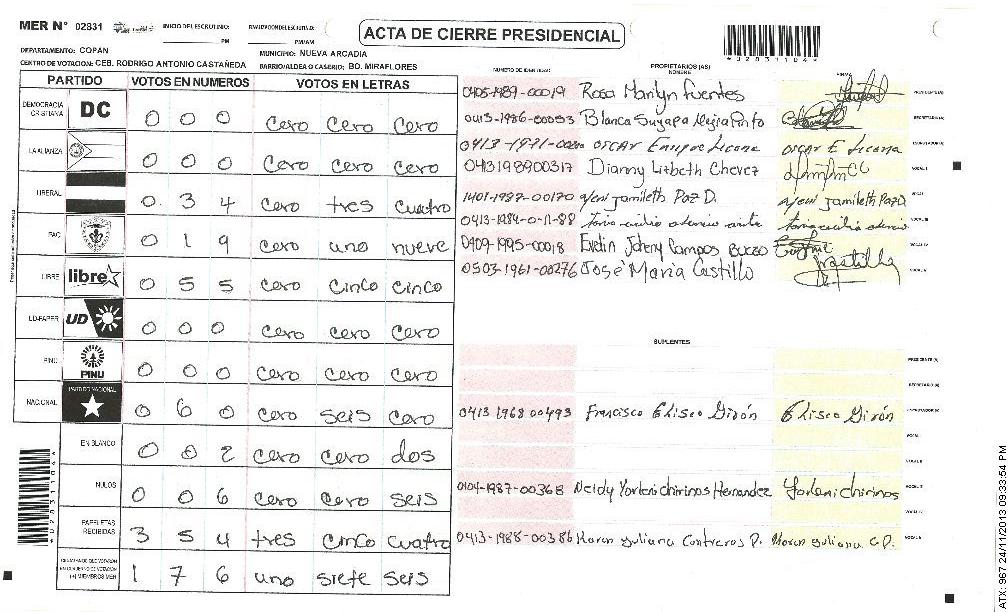 MER Nº 02831
INICIO DEL ESCRUTINIO: PM
PM/AM
ACTA DE CIERRE PRESIDENCIAL
*02831104*
DEPARTAMENTO: COPAN
MUNICIPIO: NUEVA ARCADIA
CENTRO DE VOTACION: CEB. RODRIGO ANTONIO CASTAÑEDA
BARRIO/ALDEA O CASERIO: BO. MIRAFLORES
PARTIDO VOTOS EN NUMEROS VOTOS EN LETRAS
DEMOCRACIA CRISTIANA DC 0 0 0 cero cero cero
LA ALIANZA 0 0 0 cero cero cero
LIBERAL 0 3 4 cero tres cuatro
PAC 0 1 9 cero uno nueve
LIBRE libre 0 5 5 cero cinco cinco
UD-FAPER UD 0 0 0 cero cero cero
PINU PINU 0 0 0 cero cero cero
NACIONAL PARTIDO NACIONAL 0 6 0 cero seis cero
EN BLANCO 0 0 2 cero cero dos
NULOS 0 0 6 cero cero seis
PAPELETAS RECIBIDAS 3 5 4 tres cinco cuatro
(+) MIEMBROS MER 1 7 6 uno siete seis
NUMERO DE IDENTIDAD PROPIETARIOS (AS) NOMBRE FIRMA
0405-1989-00019 Rosa Marilyn Fuentes PRESIDENTE (A)
0413-1986-00053 Blanca Suyapa SECRETARIO (A)
0413-1971- OSCAR Enrique Licona OSCAR E Licona ESCRUTADOR (A)
0413198900317 Dianny Lizbeth Chevez VOCAL I
1401-1987-00170 Yeni Jamileth Paz D. Yeni Jamileth Paz D. VOCAL II
VOCAL III
0409-1995-00018 VOCAL IV
0503-1961-00276 José María Castillo VOCAL V
SUPLENTES
PRESIDENTE (A)
SECRETARIO (A)
0413 1968 00493 Francisco Eliseo Girón Eliseo Girón ESCRUTADOR (A)
VOCAL I
VOCAL II
0104-1987-00368 Neidy Yorleni chirinos Hernandez Yorleni chirinos VOCAL III
VOCAL IV
0413-1988-00386 Karen Yuliana Contreras P. Karen Yuliana C.P. VOCAL V
*02831104*
ATX: 967 24/11/2013 09:33:54 PM